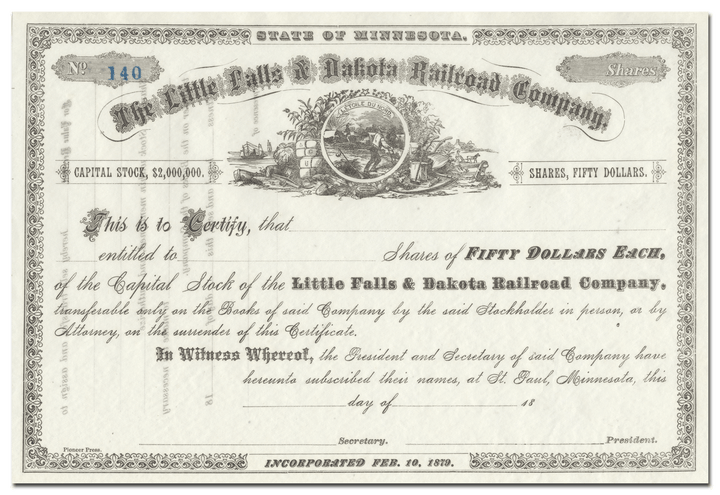 STATE OF MINNESOTA.
No 140
Shares
The Little Falls & Dakota Railroad Company.
L'ETOILE DU NORD
CAPITAL STOCK, $2,000,000.
SHARES, FIFTY DOLLARS.
This is to Certify, that
entitled to Shares of FIFTY DOLLARS EACH,
of the Capital Stock of the Little Falls & Dakota Railroad Company,
transferable only on the Books of said Company by the said Stockholder in person, or by
Attorney, on the surrender of this Certificate.
In Witness Whereof, the President and Secretary of said Company have
hereunto subscribed their names, at St. Paul, Minnesota, this
day of 18
Secretary. President.
Pioneer Press.
INCORPORATED FEB. 10, 1879.